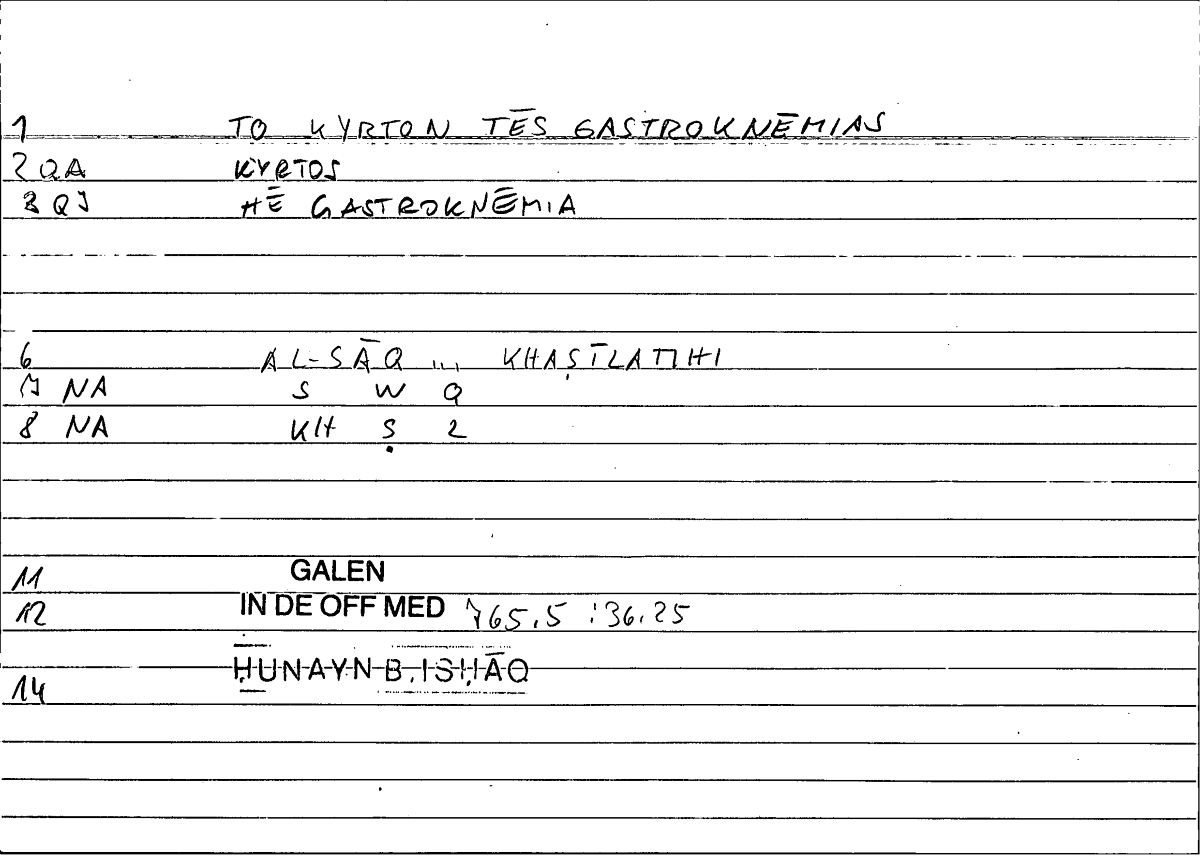 1 TO KYRTON TĒS GASTROKNĒMIAS
2 QA KYRTOS
3 QJ HĒ GASTROKNĒMIA
6 AL-SĀQ ... KHAṢĪLATIHI
7 NA S W Q
8 NA KH Ṣ L
11 GALEN
12 IN DE OFF MED 765.5 :36.25
ḤUNAYN B. ISḤĀQ
14